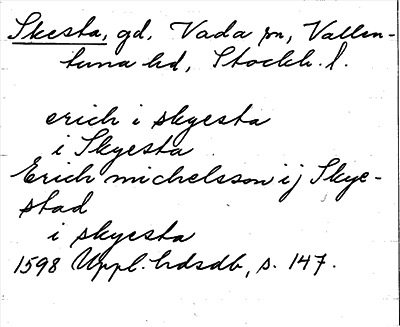 Skesta, gd, Vada sn, Vallen-
tuna hd, Stockh. l.
erich i skyesta
i Skyesta
Erich michelsson ij Skye-
stad
i skyesta
1598 Uppl. hdsdb, s. 147.